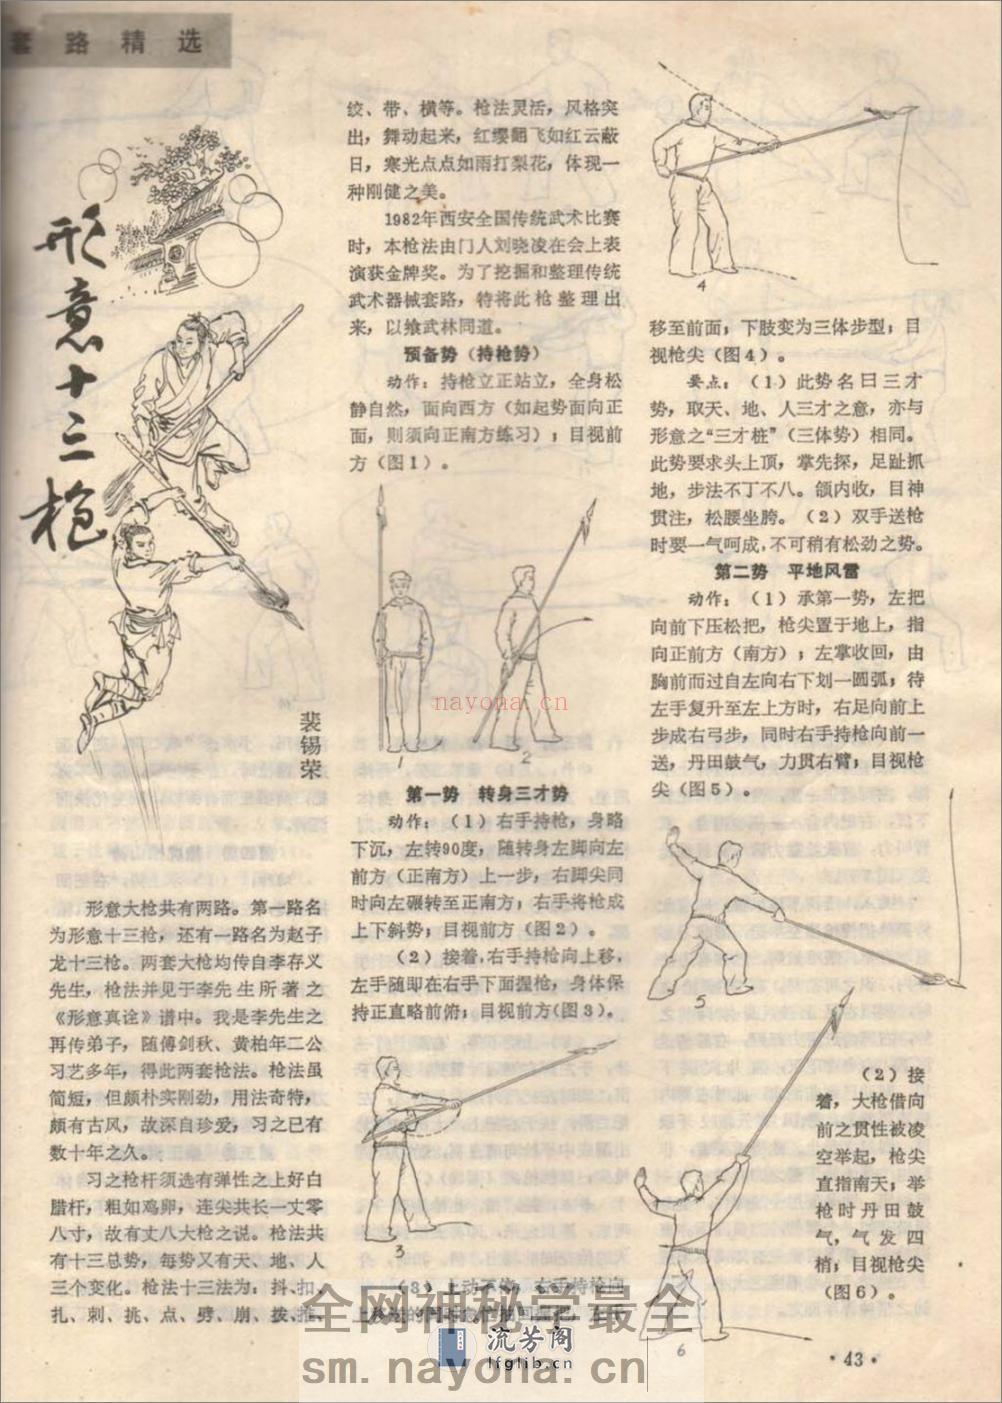 套路精选
形意十三枪
裴锡荣
形意大枪共有两路。第一路名
为形意十三枪，还有一路名为赵子
龙十三枪。两套大枪均传自李存义
先生，枪法并见于李先生所著之
《形意真诠》谱中。我是李先生之
再传弟子，随傅剑秋、黄柏年二公
习艺多年，得此两套枪法。枪法虽
简短，但颇朴实刚劲，用法奇特，
颇有古风，故深自珍爱，习之已有
数十年之久。
习之枪杆须选有弹性之上好白
腊杆，粗如鸡卵，连尖共长一丈零
八寸，故有丈八大枪之说。枪法共
有十三总势，每势又有天、地、人
三个变化。枪法十三法为：抖、扣、
扎、刺、挑、点、劈、崩、拨、推、
绞、带、横等。枪法灵活，风格突
出，舞动起来，红缨翻飞如红云蔽
日，寒光点点如雨打梨花，体现一
种刚健之美。
1982年西安全国传统武术比赛
时，本枪法由门人刘晓凌在会上表
演获金牌奖。为了挖掘和整理传统
武术器械套路，特将此枪整理出
来，以飨武林同道。
预备势（持枪势）
动作：持枪立正站立，全身松
静自然，面向西方（如起势面向正
面，则须向正南方练习）；目视前
方（图1）。
1
2
第一势 转身三才势
动作：（1）右手持枪，身略
下沉，左转90度，随转身左脚向左
前方（正南方）上一步，右脚尖同
时向左碾转至正南方；右手将枪成
上下斜势；目视前方（图2）。
（2）接着，右手持枪向上移，
左手随即在右手下面握枪，身体保
持正直略前俯；目视前方（图3）。
3
（3）上动不停，右手持枪向
4
移至前面；下肢变为三体步型；目
视枪尖（图4）。
要点：（1）此势名曰三才
势，取天、地、人三才之意，亦与
形意之“三才桩”（三体势）相同。
此势要求头上顶，掌先探，足趾抓
地，步法不丁不八。颌内收，目神
贯注，松腰坐胯。（2）双手送枪
时要一气呵成，不可稍有松劲之势。
第二势 平地风雷
动作：（1）承第一势，左把
向前下压松把，枪尖置于地上，指
向正前方（南方）；左掌收回，由
胸前而过自左向右下划一圆弧；待
左手复升至左上方时，右足向前上
步成右弓步，同时右手持枪向前一
送，丹田鼓气，力贯右臂；目视枪
尖（图5）。
5
（2）接
着，大枪借向
前之贯性被凌
空举起，枪尖
直指南天；举
枪时丹田鼓
气，气发四
梢；目视枪尖
（图6）。
6
·43·
nayona.cn
全网神秘学最全
流芳阁
lfglib.cn
sm.nayona.cn